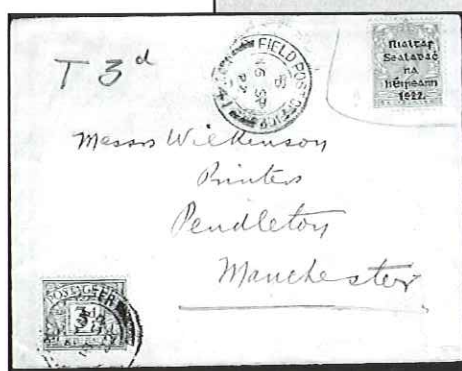 T 3d
FIELD POST OFFICE
Rialtar
Sealadaċ
na
hÉireann
1922.
Messrs Wilkinson
Printers
Pendleton
Manchester